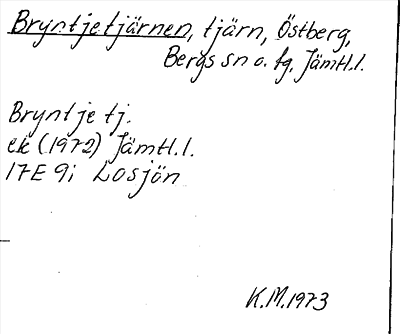 Bryntjetjärnen, tjärn, Östberg,
Bergs sn o. tg, Jämtl.l.
Bryntje tj.
ek (1972) Jämtl.l.
17E 9i Losjön
K.M.1973